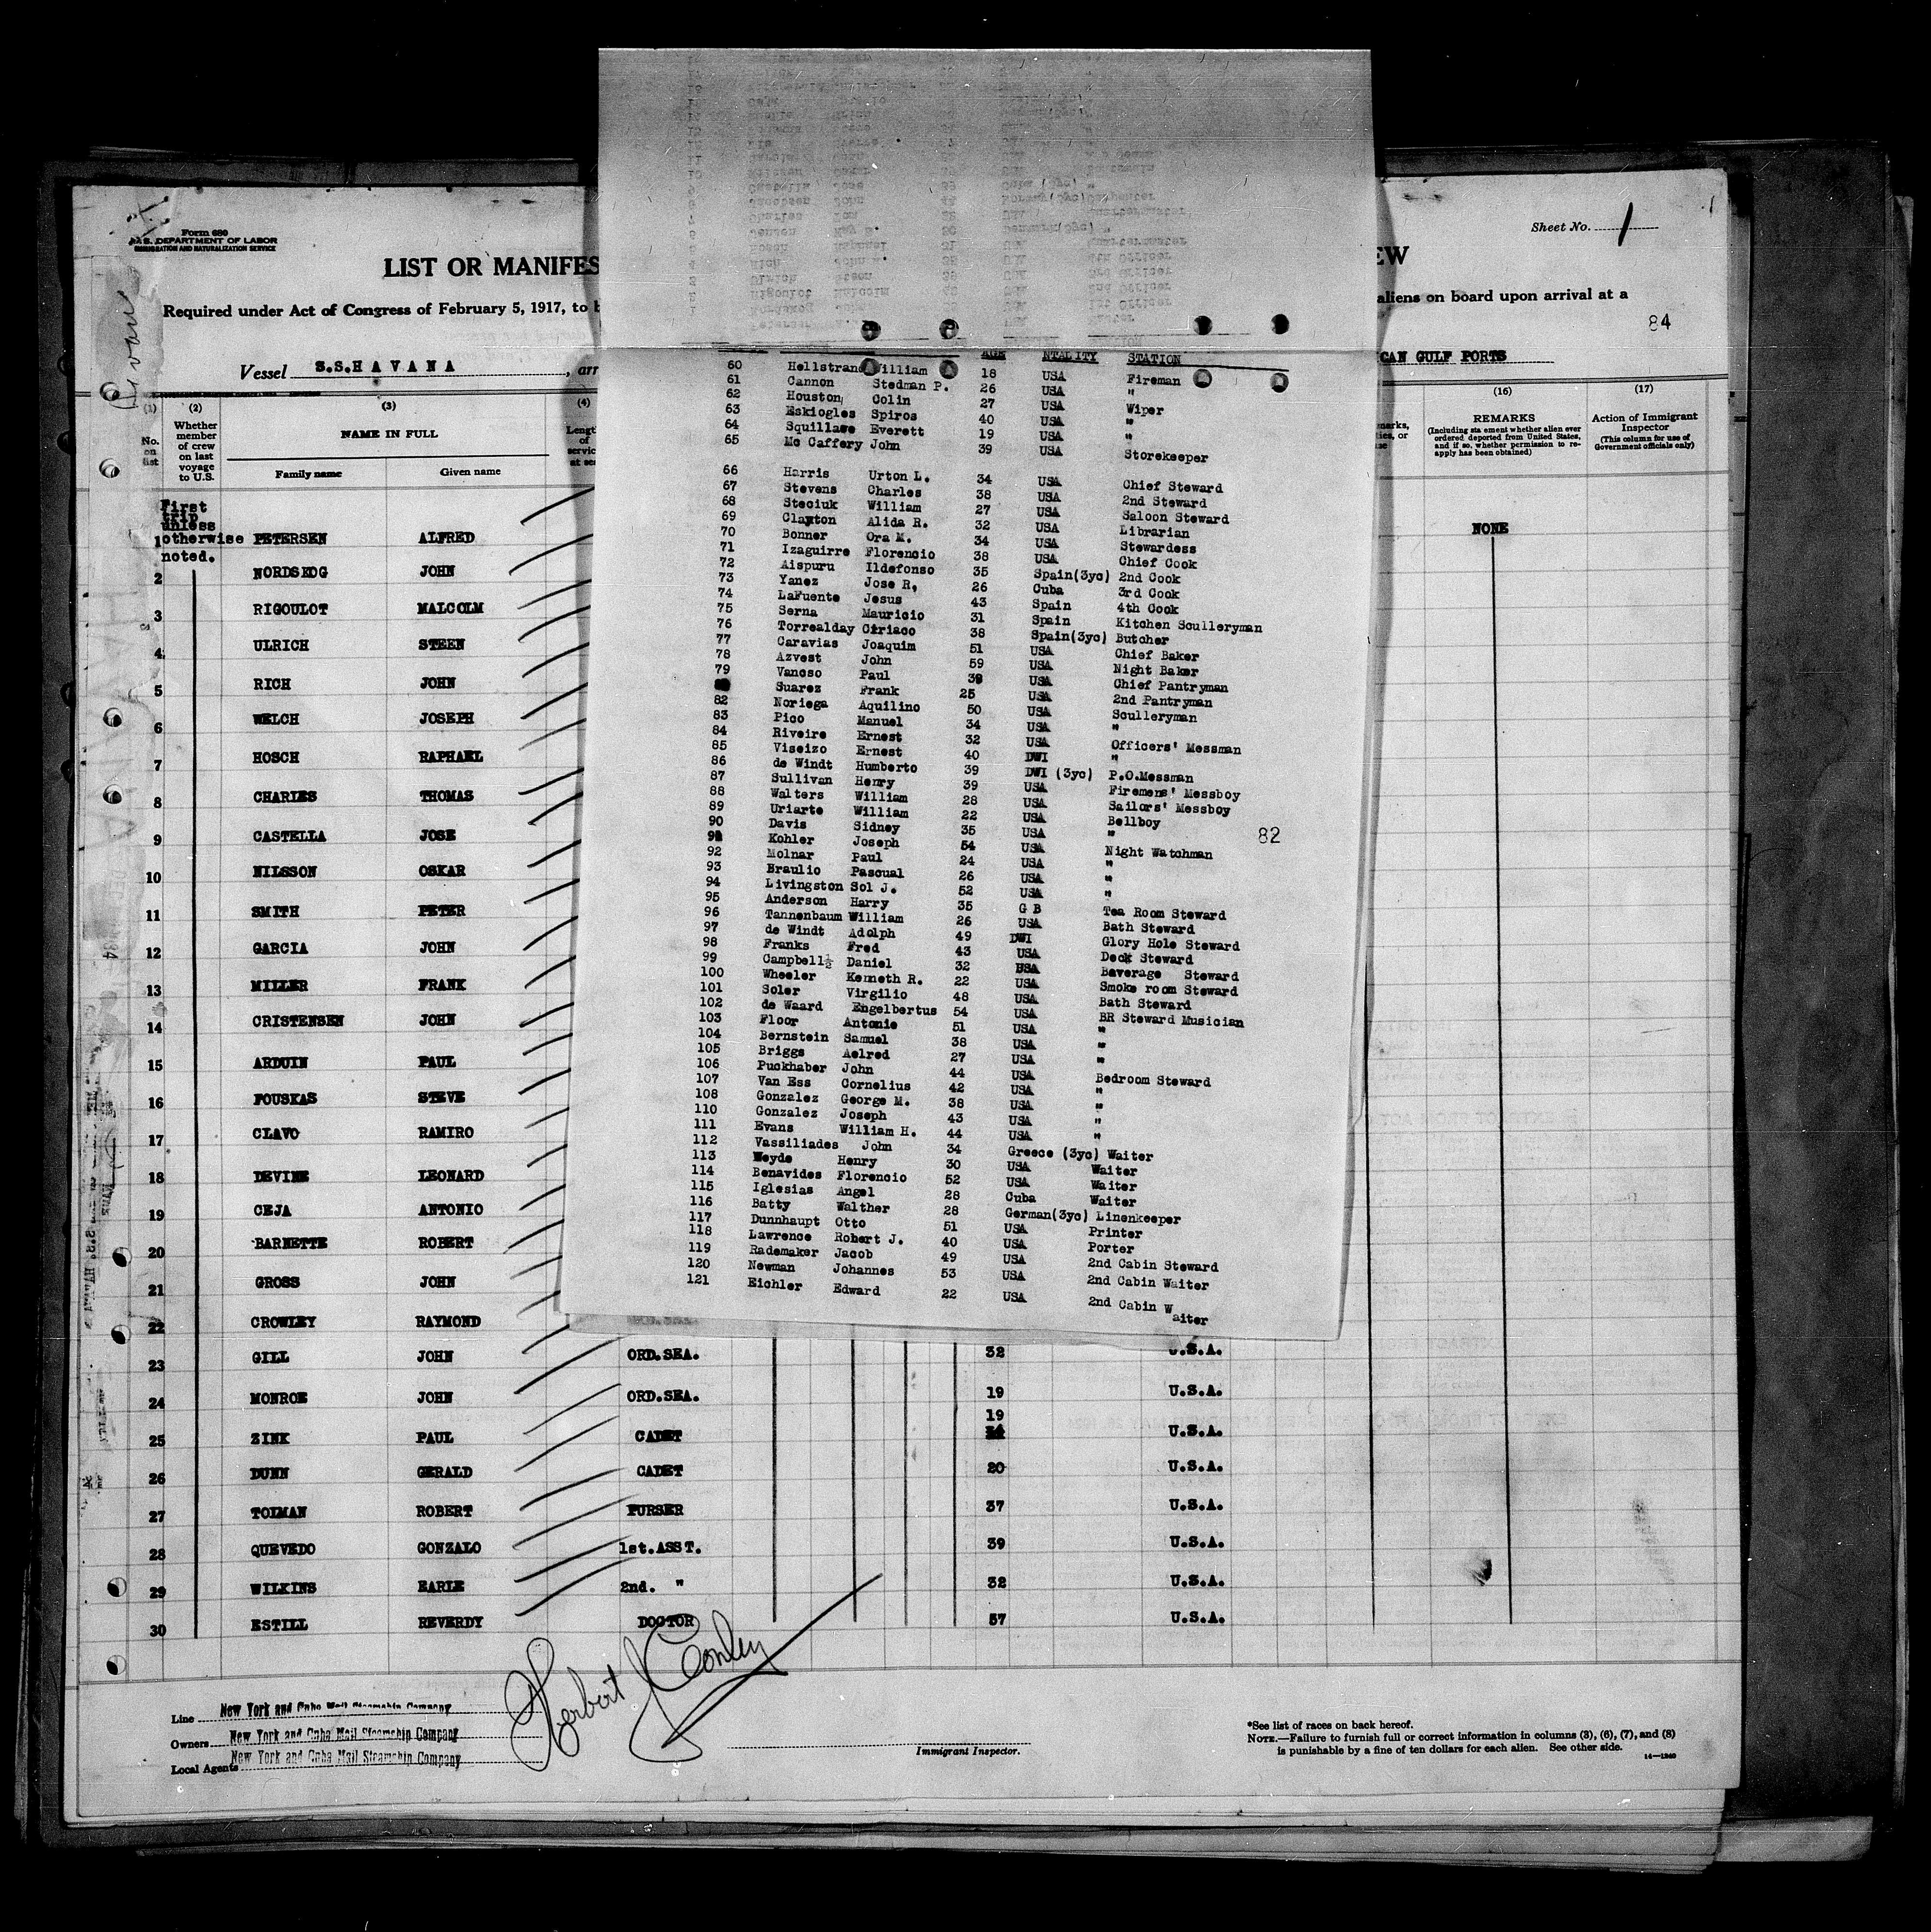 Form 680
U.S. DEPARTMENT OF LABOR
IMMIGRATION AND NATURALIZATION SERVICE
Sheet No. 1
LIST OR MANIFES
EW
Required under Act of Congress of February 5, 1917, to b
aliens on board upon arrival at a
84
Vessel S.S.HAVANA, arr
CAN GULF PORTS
(1) (2) (3) (4) (16) (17)
No. on list
Whether member of crew on last voyage to U.S.
NAME IN FULL
Family name Given name
Length of service at sea
REMARKS
(Including statement whether alien ever ordered deported from United States, and if so, whether permission to reapply has been obtained)
Action of Immigrant Inspector
(This column for use of Government officials only)
First trip unless otherwise noted.
NONE
1 PETERSEN ALFRED
2 NORDSKOG JOHN
3 RIGOULOT MALCOLM
4 ULRICH STEEN
5 RICH JOHN
6 WELCH JOSEPH
7 HOSCH RAPHAEL
8 CHARLES THOMAS
9 CASTELLA JOSE
10 NILSSON OSKAR
11 SMITH PETER
12 GARCIA JOHN
13 MILLER FRANK
14 CRISTENSEN JOHN
15 ARDUIN PAUL
16 FOUSKAS STEVE
17 CLAVO RAMIRO
18 DEVINE LEONARD
19 CEJA ANTONIO
20 BARNETTE ROBERT
21 GROSS JOHN
22 CROWLEY RAYMOND
23 GILL JOHN ORD.SEA. 32 U.S.A.
24 MONROE JOHN ORD.SEA. 19 U.S.A.
25 ZINK PAUL CADET 19 U.S.A.
26 DUNN GERALD CADET 20 U.S.A.
27 TOLMAN ROBERT PURSER 37 U.S.A.
28 QUEVEDO GONZALO 1st.ASST. 39 U.S.A.
29 WILKINS EARLE 2nd. " 32 U.S.A.
30 ESTILL REVERDY DOCTOR 57 U.S.A.
AGE NTALITY STATION
60 Hellstrand William 18 USA Fireman
61 Cannon Stedman P. 26 USA "
62 Houston Colin 27 USA Wiper
63 Eskiogles Spiros 40 USA "
64 Squillase Everett 19 USA "
65 Mc Caffery John 39 USA Storekeeper
66 Harris Urton L. 34 USA Chief Steward
67 Stevens Charles 38 USA 2nd Steward
68 Steciuk William 27 USA Saloon Steward
69 Clayton Alida R. 32 USA Librarian
70 Bonner Ora M. 34 USA Stewardess
71 Izaguirre Florencio 38 USA Chief Cook
72 Aispuru Ildefonso 35 Spain(3yc) 2nd Cook
73 Yanez Jose R, 26 Cuba 3rd Cook
74 LaFuente Jesus 43 Spain 4th Cook
75 Serna Mauricio 31 Spain Kitchen Sculleryman
76 Torrealday Ciriaco 38 Spain(3yc) Butcher
77 Caravias Joaquim 51 USA Chief Baker
78 Azvest John 59 USA Night Baker
79 Vancso Paul 39 USA Chief Pantryman
Suarez Frank 25 USA 2nd Pantryman
82 Noriega Aquilino 50 USA Sculleryman
83 Pico Manuel 34 USA "
84 Riveire Ernest 32 USA Officers' Messman
85 Viseizo Ernest 40 DWI "
86 de Windt Humberto 39 DWI (3yc) P.O.Messman
87 Sullivan Henry 39 USA Firemens' Messboy
88 Walters William 28 USA Sailors' Messboy
89 Uriarte William 22 USA Bellboy
90 Davis Sidney 35 USA "
91 Kohler Joseph 54 USA Night Watchman
92 Molnar Paul 24 USA "
93 Braulio Pascual 26 USA "
94 Livingston Sol J. 52 USA "
95 Anderson Harry 35 G B Tea Room Steward
96 Tannenbaum William 26 USA Bath Steward
97 de Windt Adolph 49 DWI Glory Hole Steward
98 Franks Fred 43 USA Deck Steward
99 Campbell½ Daniel 32 USA Beverage Steward
100 Wheeler Kenneth R. 22 USA Smoke room Steward
101 Soler Virgilio 48 USA Bath Steward
102 de Waard Engelbertus 54 USA BR Steward Musician
103 Floor Antonie 51 USA "
104 Bernstein Samuel 38 USA "
105 Briggs Aelred 27 USA "
106 Puckhaber John 44 USA Bedroom Steward
107 Van Ess Cornelius 42 USA "
108 Gonzalez George M. 38 USA "
110 Gonzalez Joseph 43 USA "
111 Evans William H. 44 USA "
112 Vassiliades John 34 Greece (3yc) Waiter
113 Weyde Henry 30 USA Waiter
114 Benavides Florencio 52 USA Waiter
115 Iglesias Angel 28 Cuba Waiter
116 Batty Walther 28 German(3yc) Linenkeeper
117 Dunnhaupt Otto 51 USA Printer
118 Lawrence Robert J. 40 USA Porter
119 Rademaker Jacob 49 USA 2nd Cabin Steward
120 Newman Johannes 53 USA 2nd Cabin Waiter
121 Eichler Edward 22 USA 2nd Cabin Waiter
82
Herbert J Conley
Line New York and Cuba Mail Steamship Company
Owners New York and Cuba Mail Steamship Company
Local Agents New York and Cuba Mail Steamship Company
Immigrant Inspector.
*See list of races on back hereof.
NOTE.—Failure to furnish full or correct information in columns (3), (6), (7), and (8)
is punishable by a fine of ten dollars for each alien. See other side.
14—1240